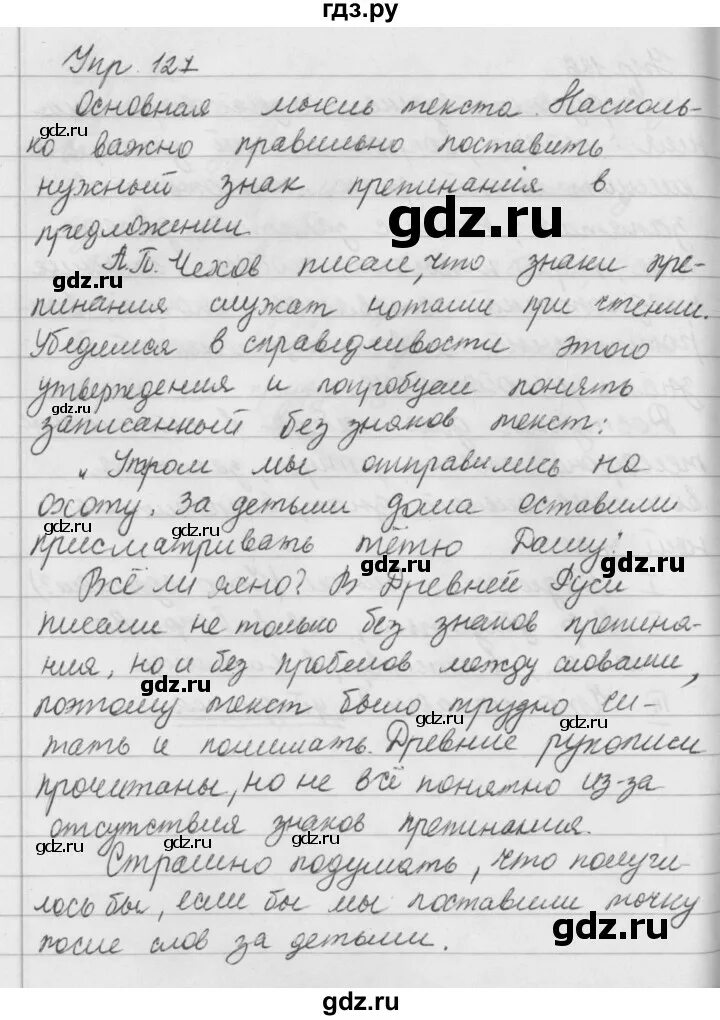 гдз.ру
Упр. 127
Основная мысль текста. Насколь-
gdz.ru
ко важно правильно поставить
gdz.ru
нужный знак препинания в
gdz.ru
предложении.
gdz.ru
А.П. Чехов писал, что знаки пре-
gdz.ru
пинания служат нотами при чтении.
Убедимся в справедливости этого
утверждения и попробуем понять
gdz.ru
записанный без знаков текст:
gdz.ru
„Утром мы отправились на
охоту. За детьми дома оставили
gdz.ru
gdz.ru
присматривать тётю Дашу!
gdz.ru
Всё ли ясно? В Древней Руси
писали не только без знаков препина-
ния, но и без пробелов между словами,
gdz.ru
gdz.ru
поэтому текст было трудно си-
gdz.ru
gdz.ru
тать и понимать. Древние рукописи
прочитаны, но не всё понятно из-за
отсутствия знаков препинания.
gdz.ru
gdz.ru
gdz.ru
Страшно подумать, что получи-
лось бы, если бы мы поставили точку
gdz.ru
gdz.ru
после слов за детьми.
gdz.ru